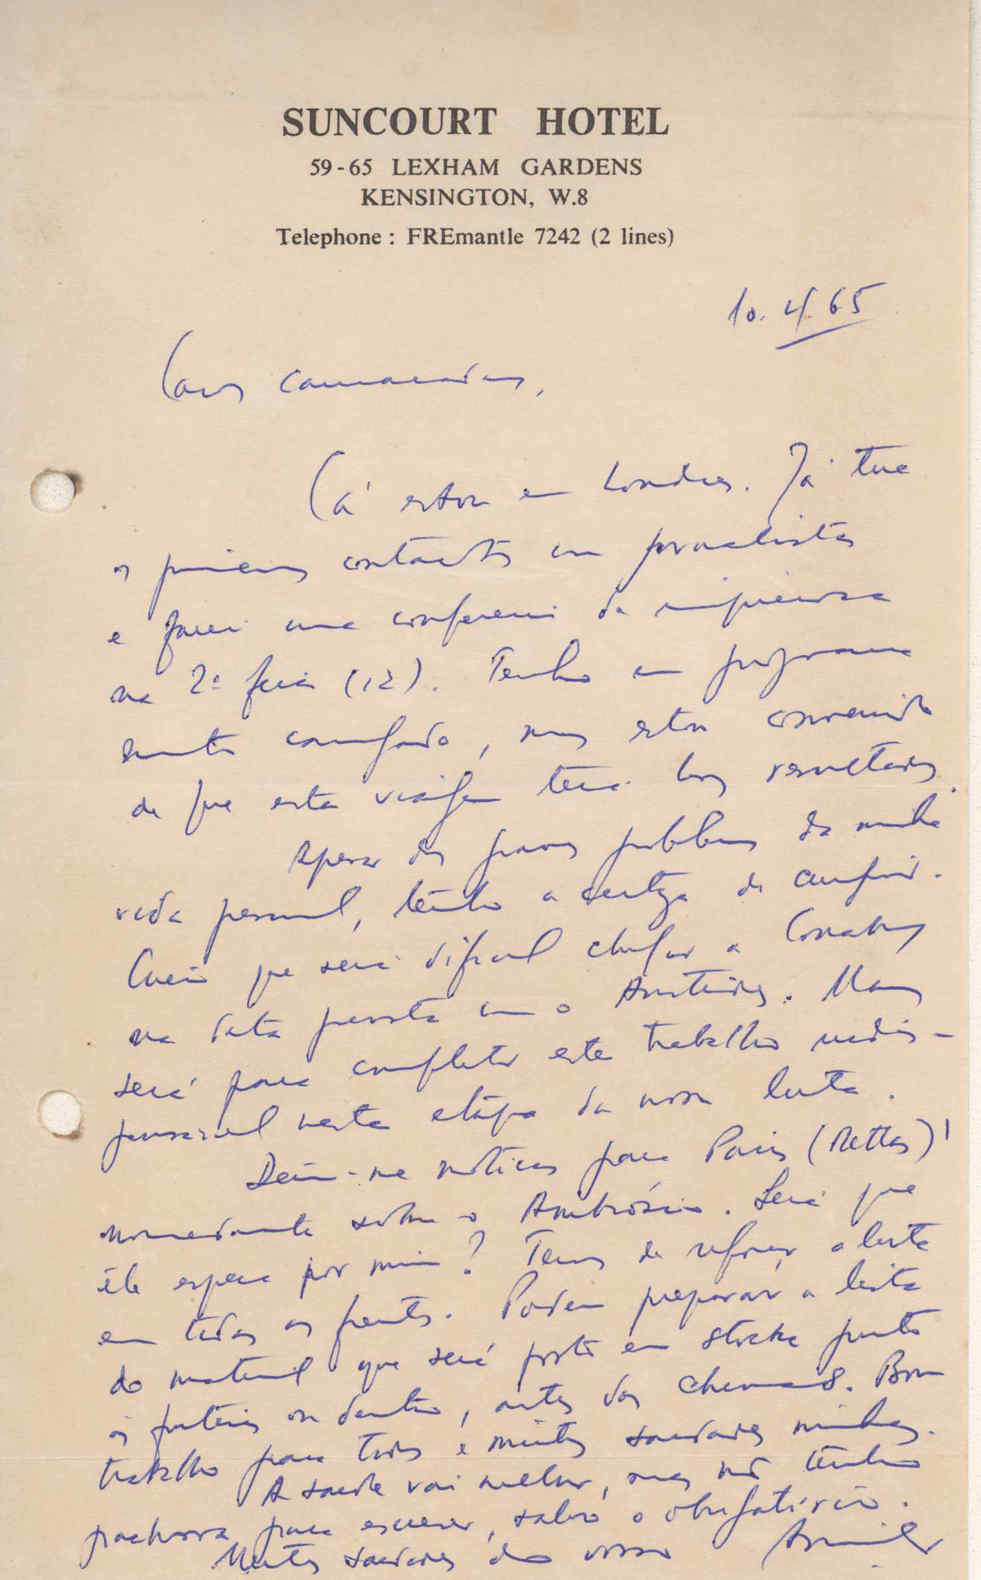 SUNCOURT HOTEL
59-65 LEXHAM GARDENS
KENSINGTON, W.8
Telephone : FREmantle 7242 (2 lines)
10.4.65
Caros camaradas,
Cá estou em Londres. Já tive
os primeiros contactos com jornalistas
e farei uma conferência da imprensa
na 2ª feira (12). Tenho um programa
muito carregado, mas estou convencido
de que esta viagem terá bons resultados.
Apesar dos graves problemas da minha
vida pessoal, tenho a certeza de cumprir.
Creio que será difícil chegar a Conakry
na data prevista com o Aristides. Mas
será para completar este trabalho indis-
pensável nesta etapa da nossa luta.
Dêem-me notícias para Paris (Mettas)
nomeadamente sobre o Ambrósio. Será que
êle espera por mim? Temos de reforçar a luta
em todas as frentes. Podem preparar a lista
do material que será posto em stocks junto
às fronteiras ou dentro, antes das chuvas. Bom
trabalho para todos e muitas saudades minhas.
A saude vai melhor, mas não tenho
pachorra para escrever, salvo o obrigatório.
Muitas saudades do vosso Amílcar